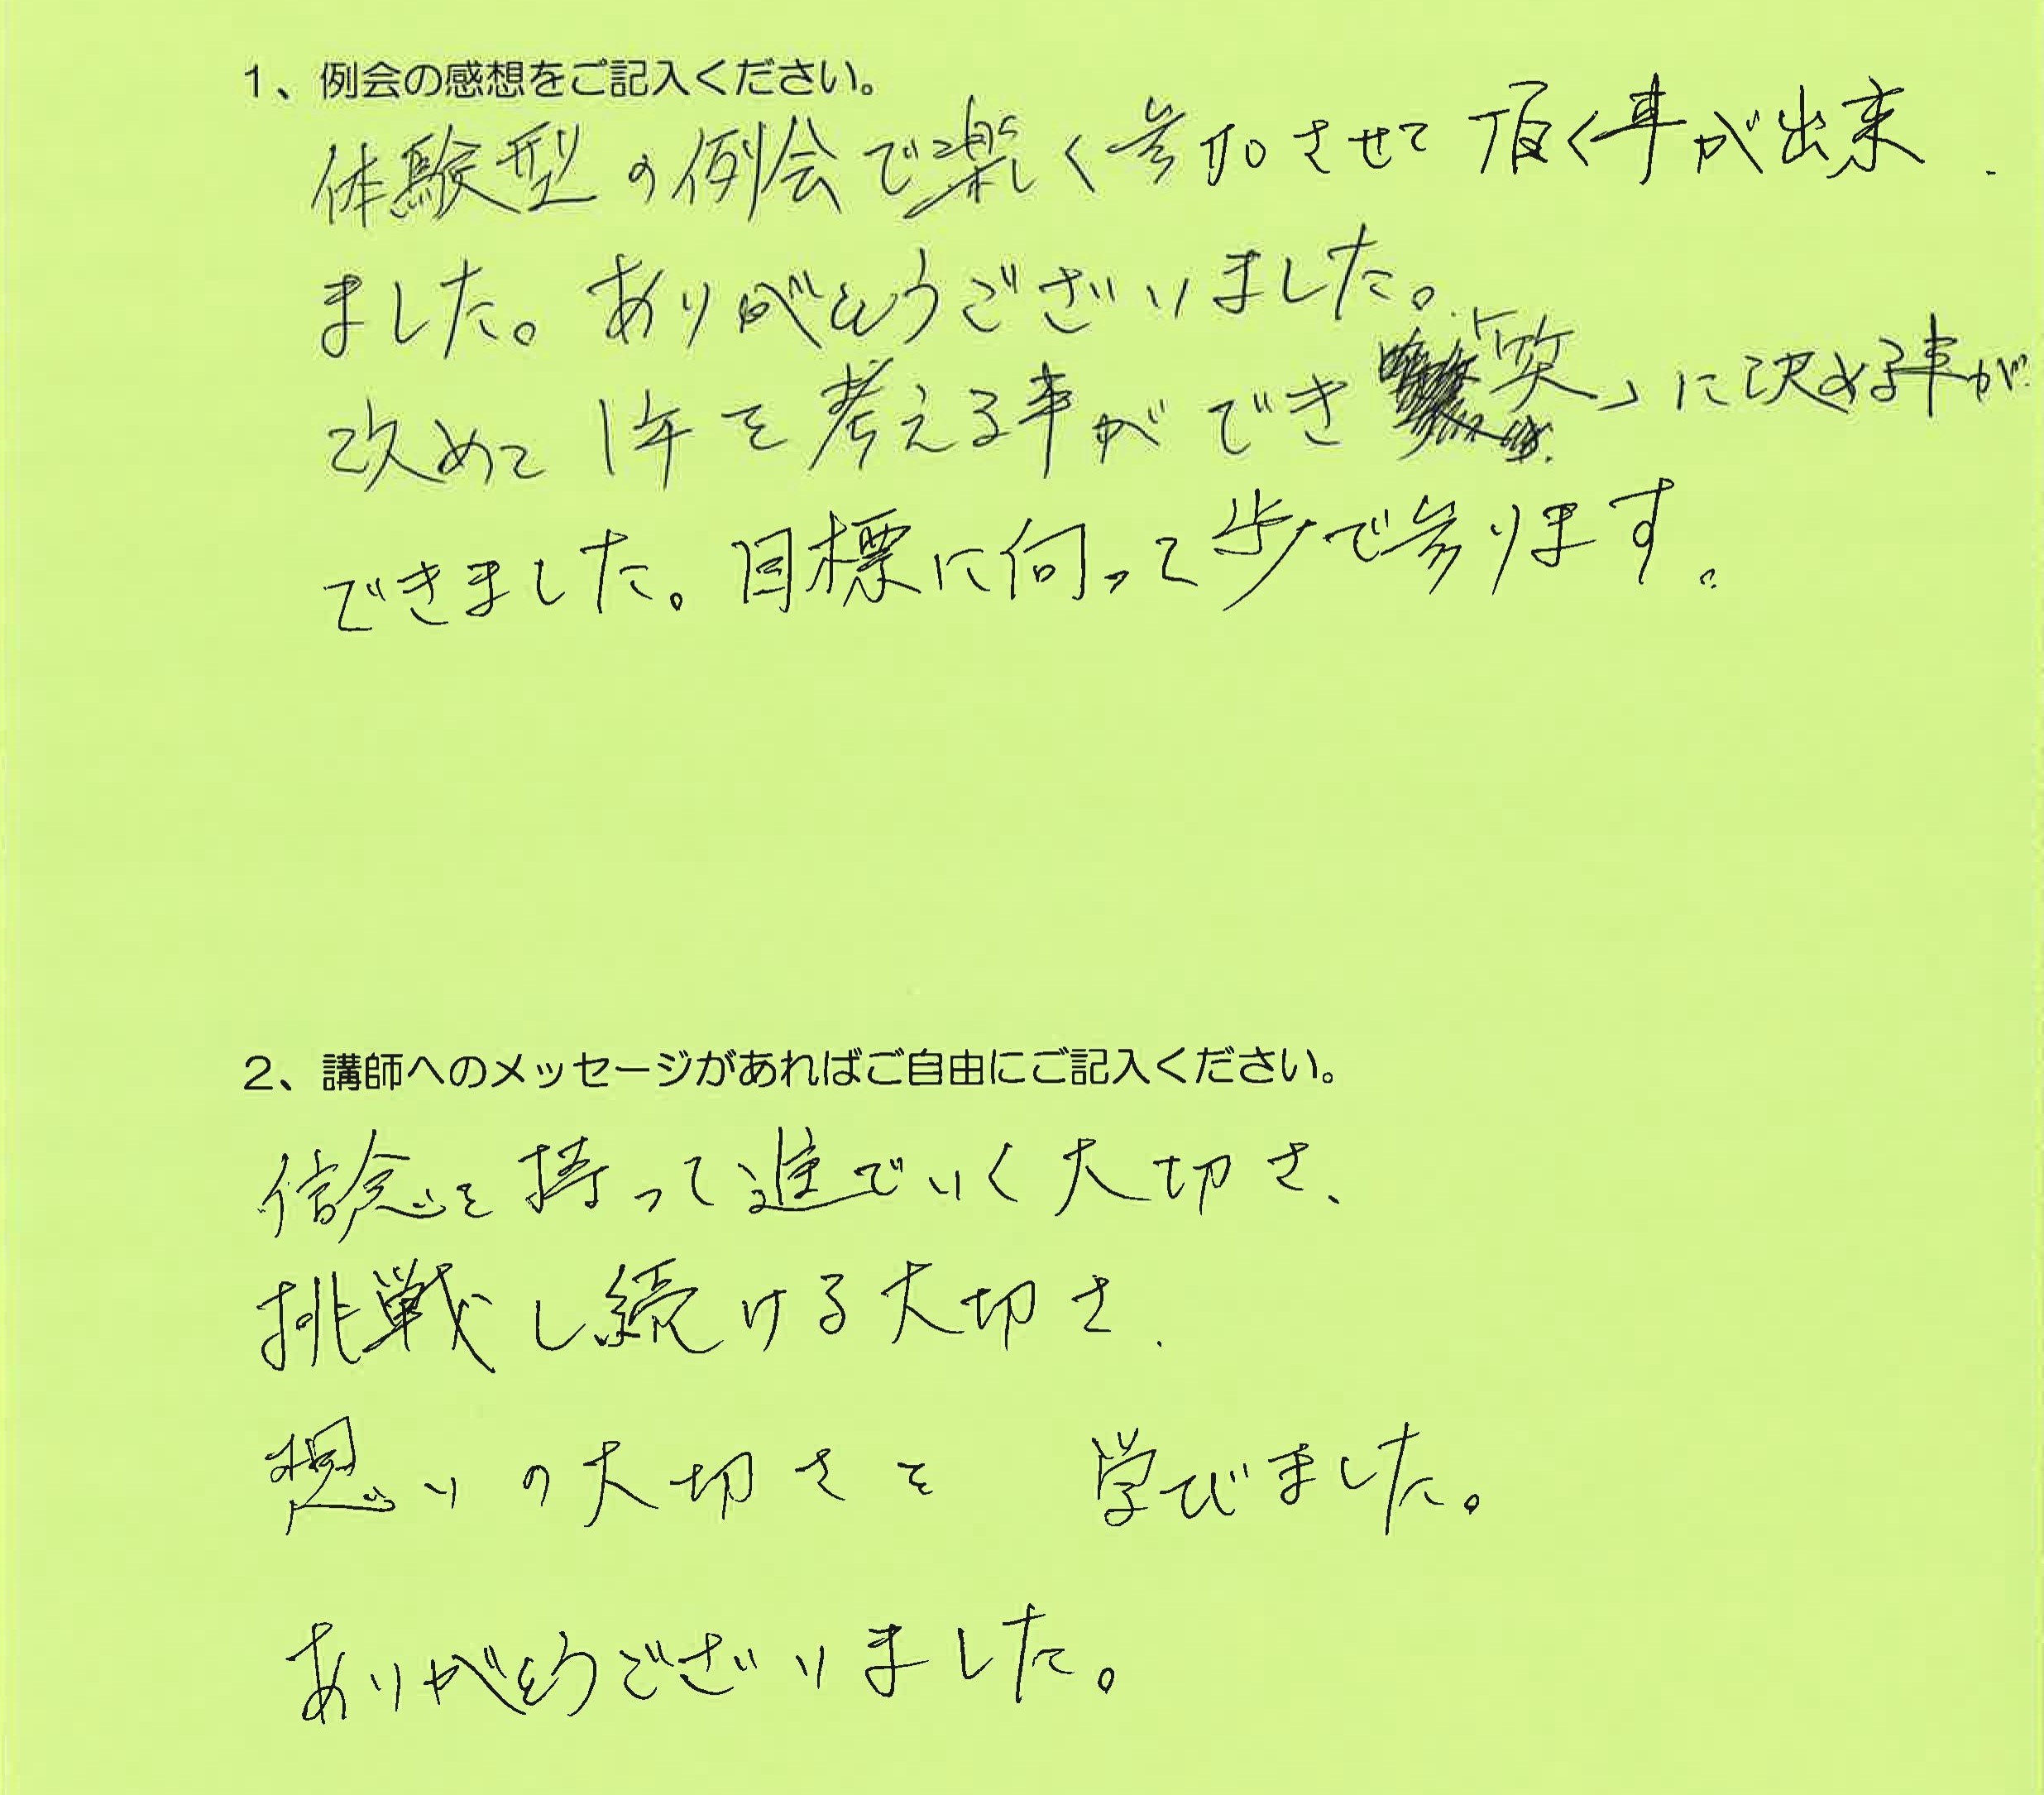 1、例会の感想をご記入ください。
体験型の例会で楽しく参加させて頂く事が出来
ました。ありがとうございました。
改めて1年を考える事ができ「笑」に決める事が
できました。目標に向って歩で参ります。
2、講師へのメッセージがあればご自由にご記入ください。
信念を持って進でいく大切さ、
挑戦し続ける大切さ、
想いの大切さを 学びました。
ありがとうございました。